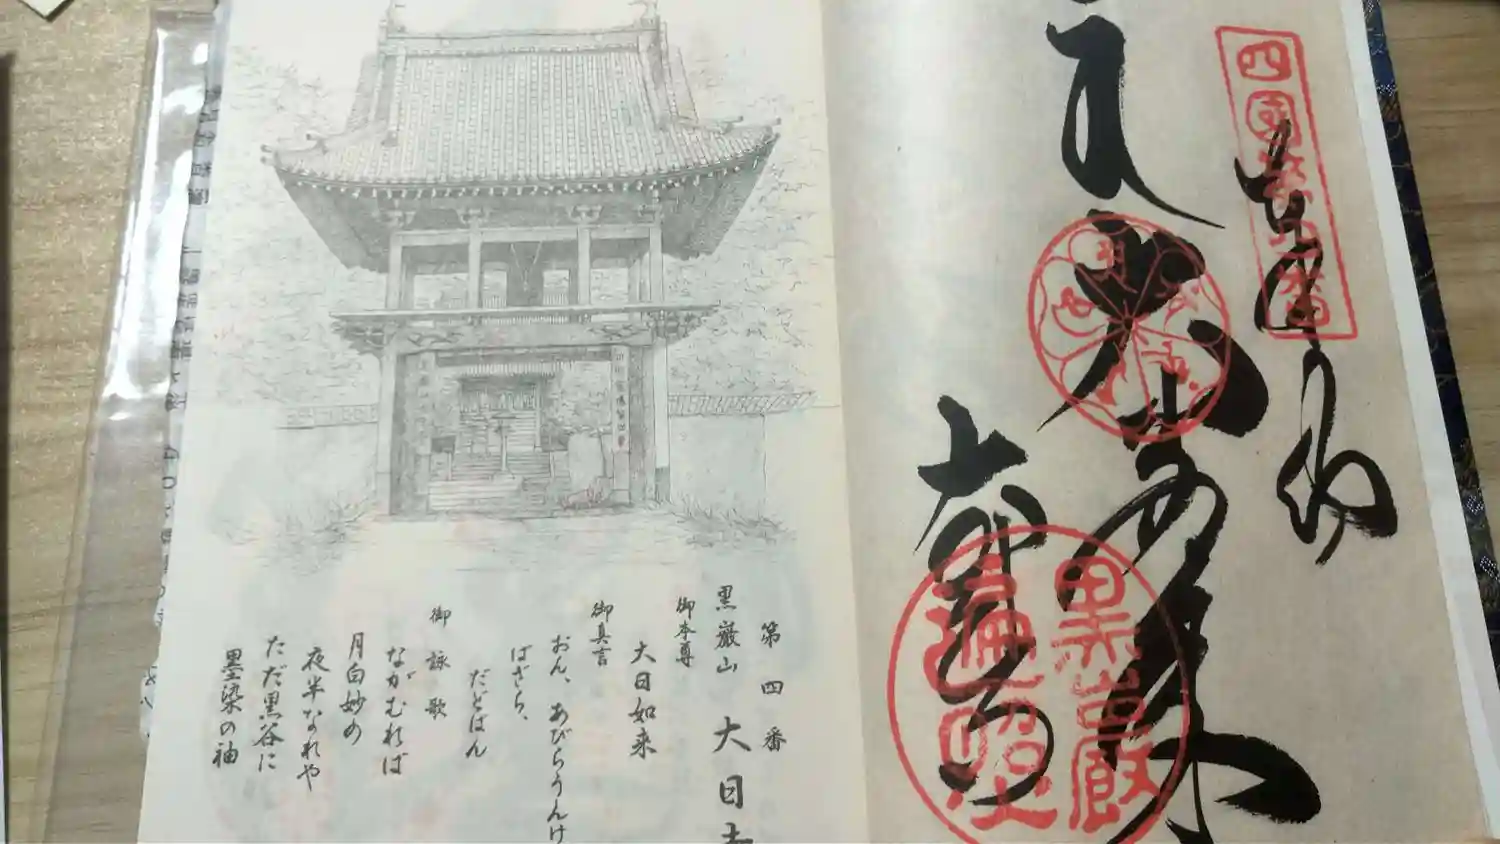 四国第四番
奉納
大日如来
大日寺
黒巌
遍照
第四番
黒巌山 大日寺
御本尊
大日如来
御真言
おん、あびらうんけ
ばざら、
だどばん
御詠歌
ながむれば
月白妙の
夜半なれや
ただ黒谷に
墨染の袖